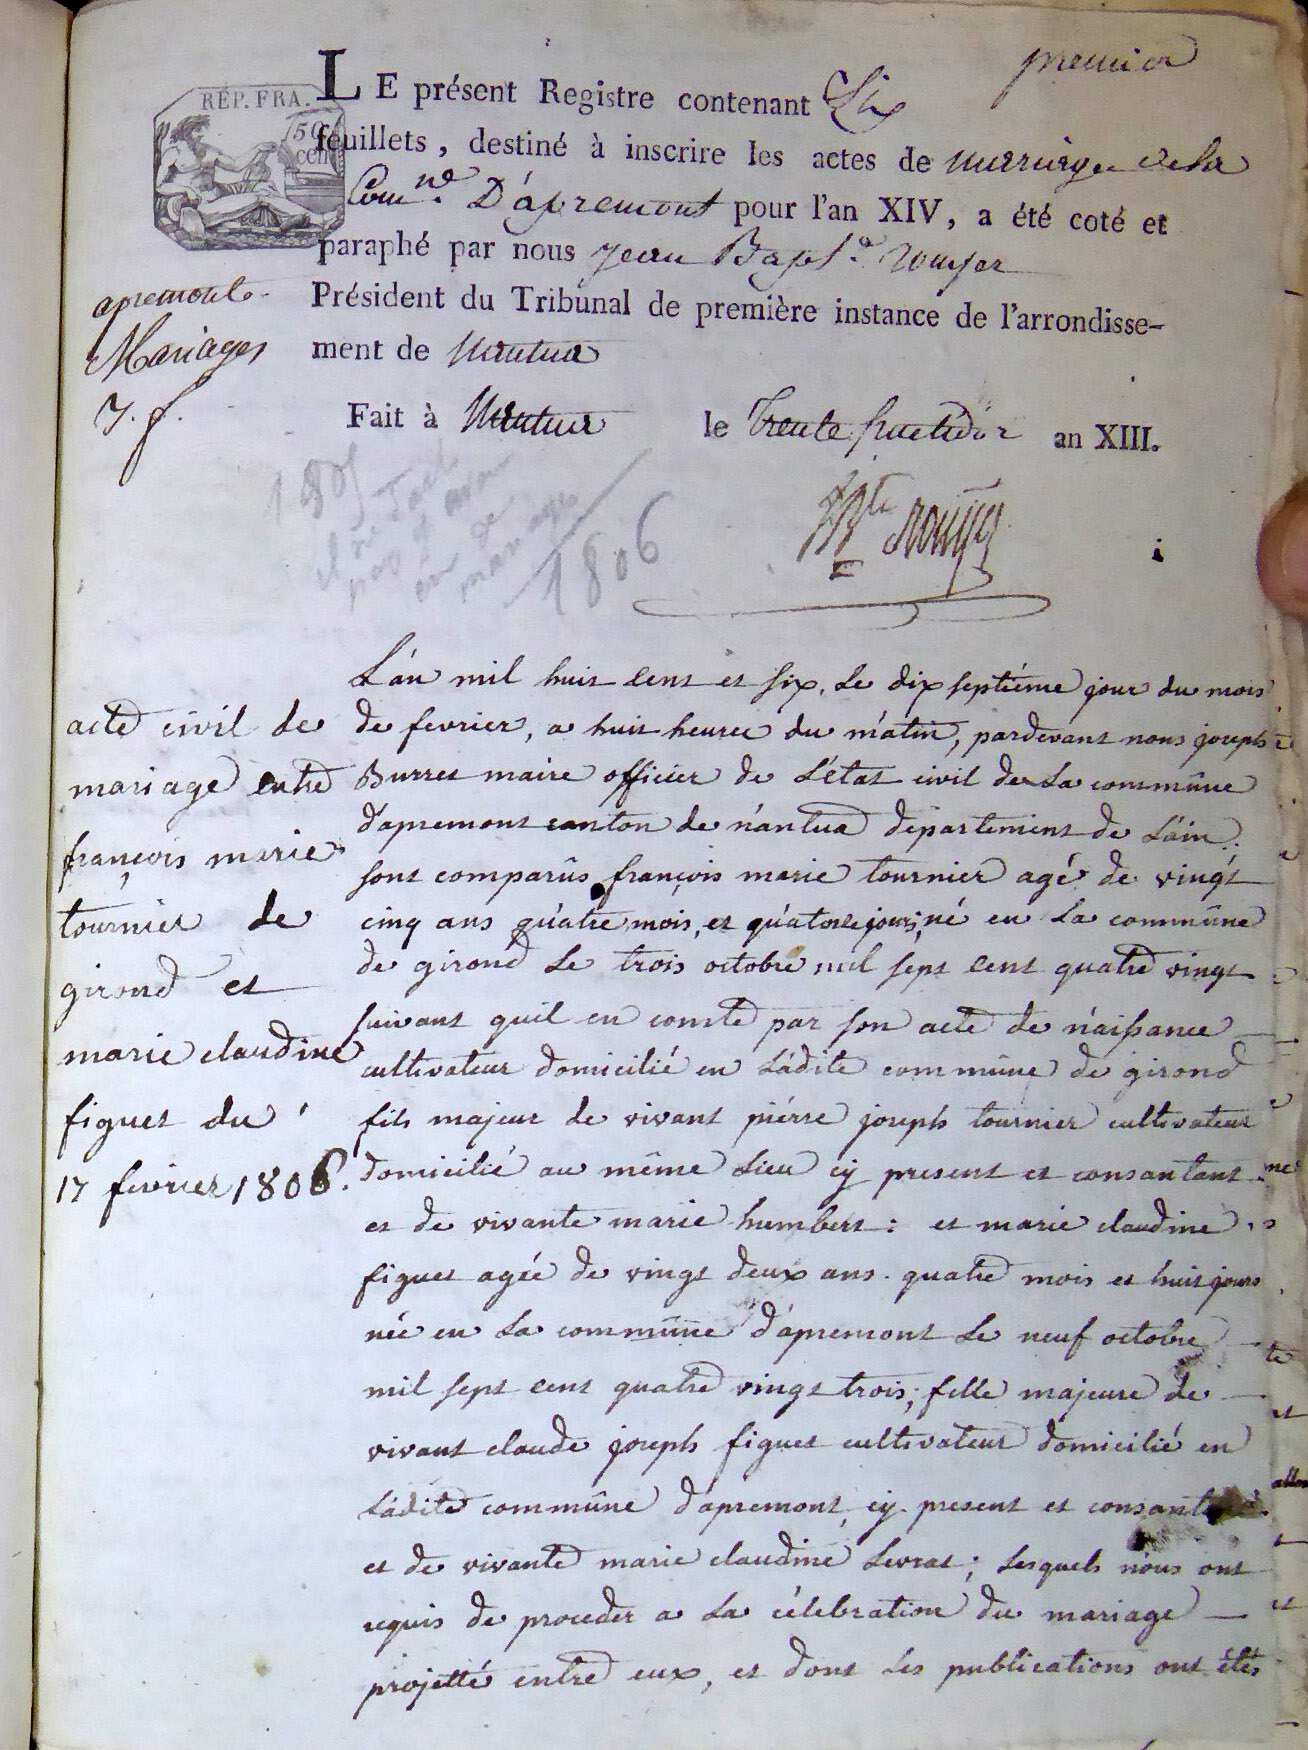 premier
RÉP. FRA.
50
cen
LE présent Registre contenant Six
feuillets, destiné à inscrire les actes de marriage de la
Com.ne D'apremont pour l'an XIV, a été coté et
paraphé par nous Jean Bapt.e rouyer
Président du Tribunal de première instance de l'arrondisse-
ment de Nantua
Fait à Nantua le trente fructidor an XIII.
apremont
Mariages
J. f.
1805
il ne
pas
en de
mariage
1806
Bte rouyer
acte civil de
mariage entre
françois marie
tournier de
girond et
marie claudine
figuet du
17 fevrier 1806.
L'an mil huit cent et six, le dix septiéme jour du mois
de fevrier, a huit heures du matin, pardevant nous joseph
Burret maire officier de l'état civil de la commûne
d'apremont canton de nantua departement de l'ain.
sont comparûs françois marie tournier agé de vingt
cinq ans quatre mois, et quatorze jours, né en la commûne
de girond le trois octobre mil sept cent quatre vingt
suivant quil en conste par son acte de naissance
cultivateur domicilié en ladite commûne de girond
fils majeur de vivant piérre joseph tournier cultivateur
domicilié au même lieu cy present et consantant
et de vivante marie humbert : et marie claudine
figuet agée de vingt deux ans. quatre mois et huit jours
née en la commûne d'apremont le neuf octobre
mil sept cent quatre vingt trois; fille majeure de
vivant claude joseph figuet cultivateur domicilié en
ladite commûne d'apremont, cy present et consant
et de vivante marie claudine levrat; lesquels nous ont
requis de proceder a la célebration du mariage
projetté entre eux, et dont les publications ont étés